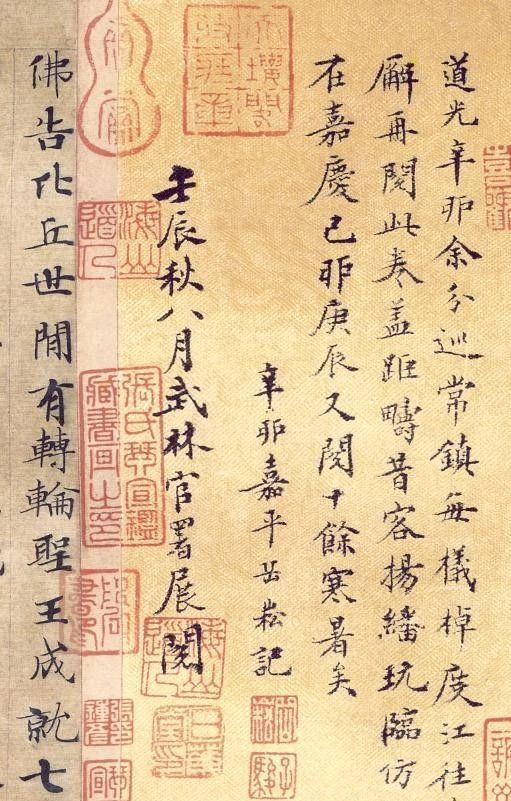 道光辛卯余分巡常鎮每檥棹度江往
廨再閱此卷蓋距疇昔客揚繙玩臨仿
在嘉慶己卯庚辰又閱十餘寒暑矣
辛卯嘉平岳崧記
壬辰秋八月武林官署展閱
佛告比丘世閒有轉輪聖王成就七